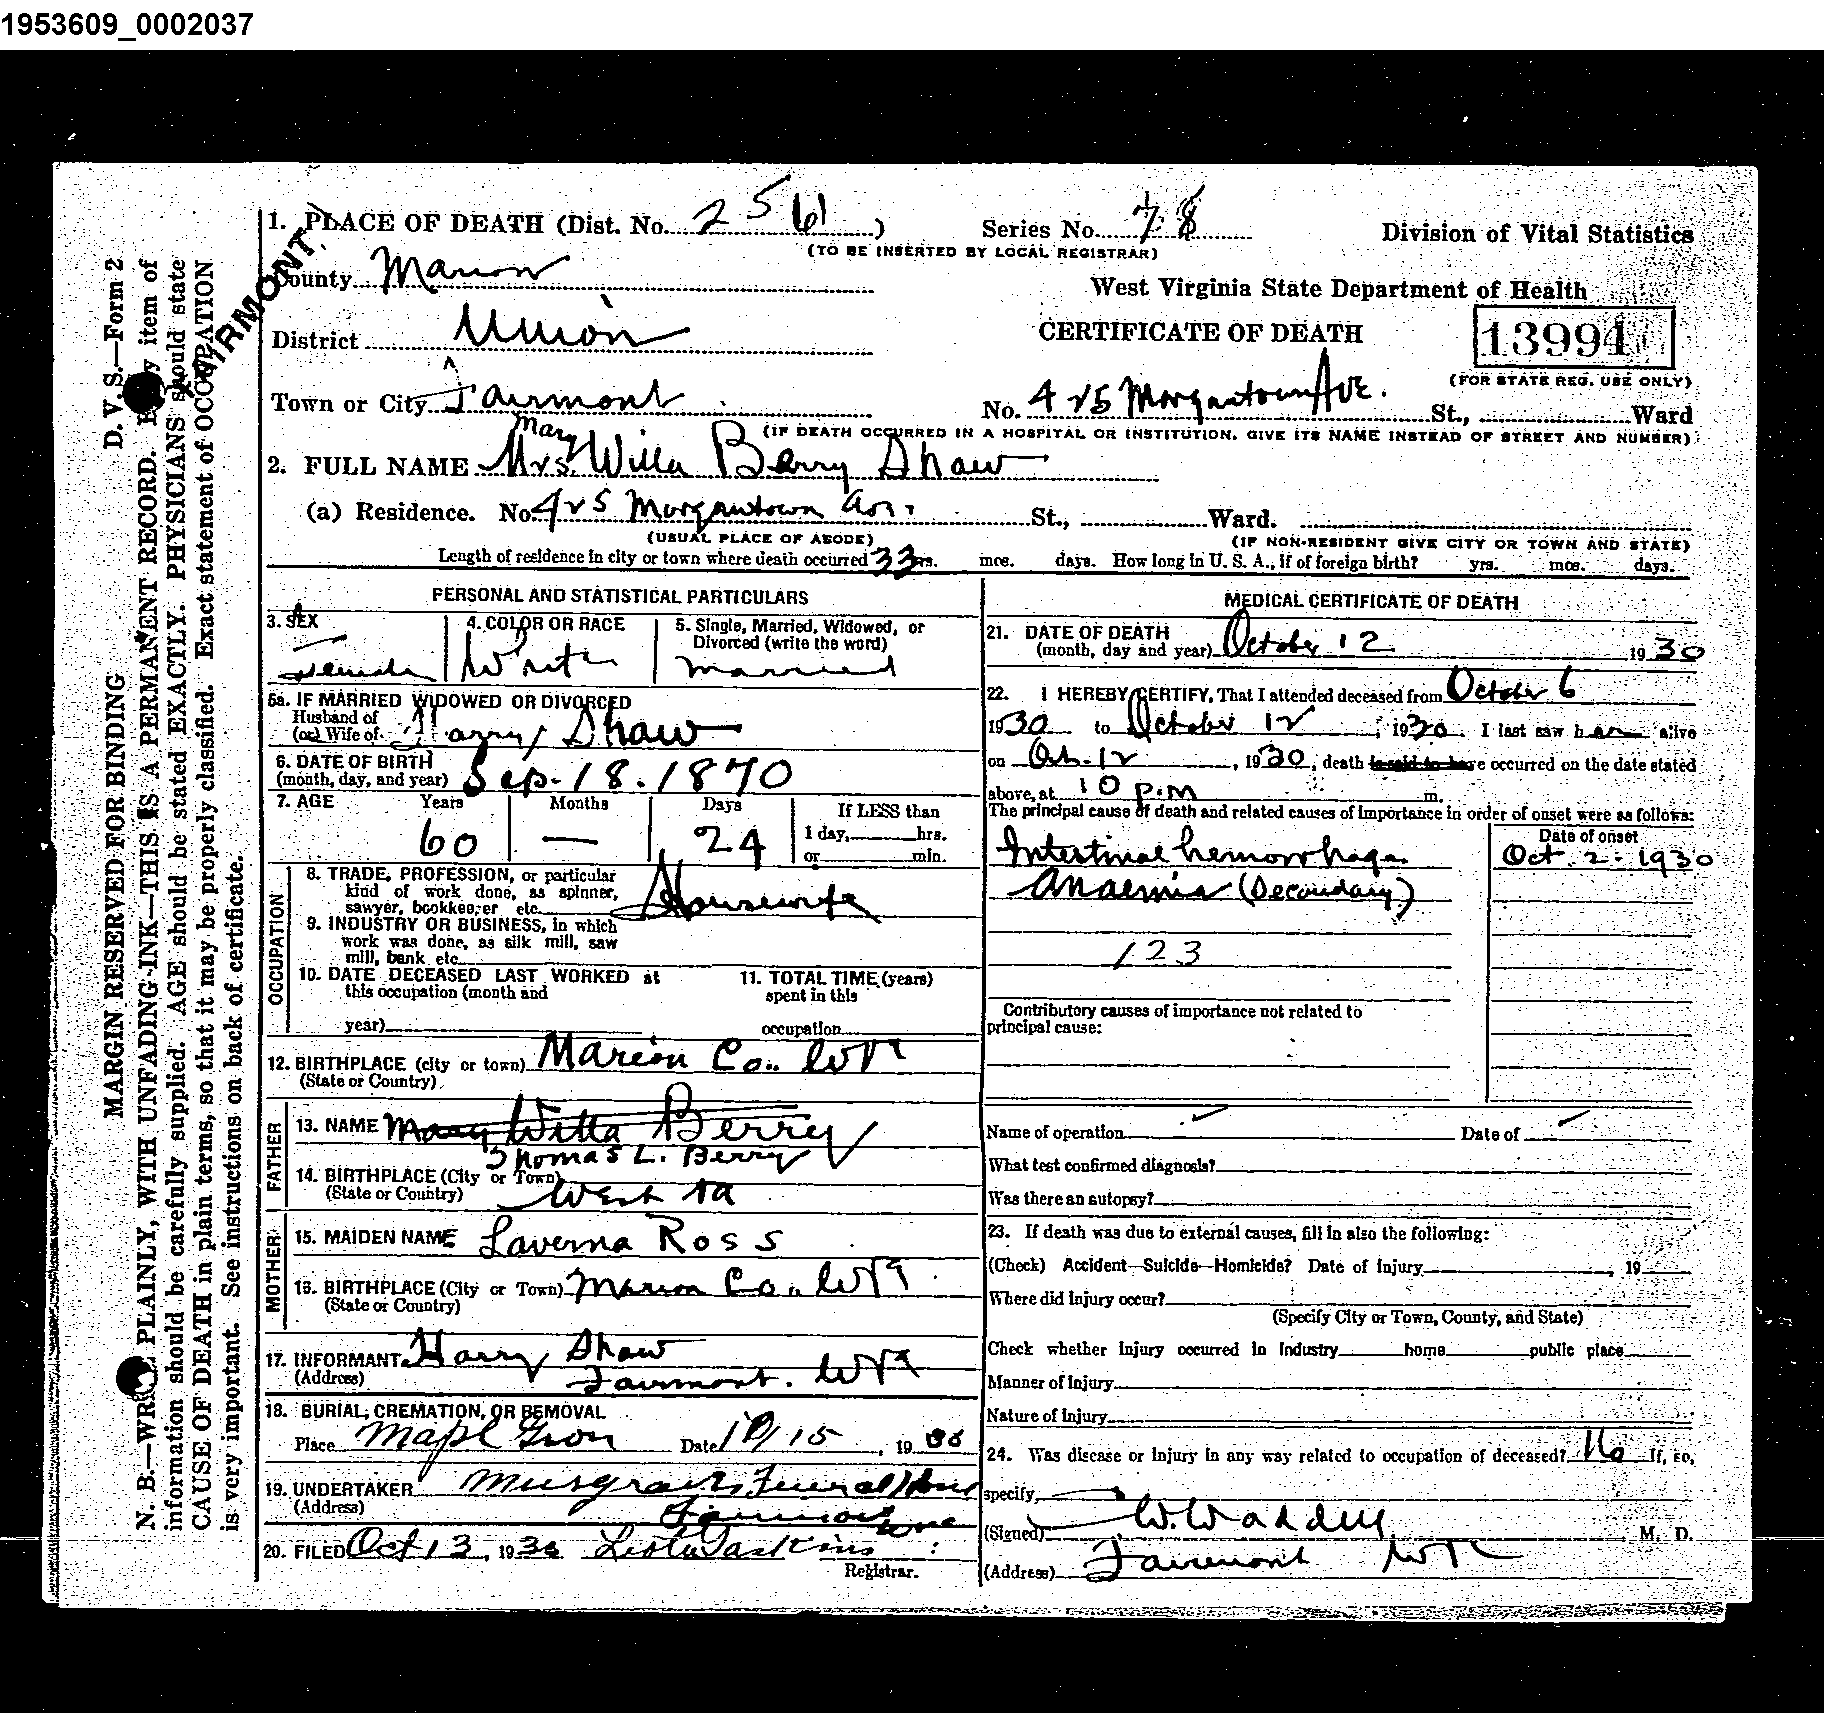 1953609_0002037
1. PLACE OF DEATH (Dist. No. 2561)
Series No. 78
Division of Vital Statistics
(TO BE INSERTED BY LOCAL REGISTRAR)
FAIRMONT.
County Marion
West Virginia State Department of Health
District Union
CERTIFICATE OF DEATH
13994
(FOR STATE REG. USE ONLY)
Town or City Fairmont
No. 425 Morgantown Ave. St., Ward
(IF DEATH OCCURRED IN A HOSPITAL OR INSTITUTION, GIVE ITS NAME INSTEAD OF STREET AND NUMBER)
Mary
2. FULL NAME Mrs. Willa Berry Shaw
(a) Residence. No. 425 Morgantown Av. St., Ward.
(USUAL PLACE OF ABODE)
(IF NON-RESIDENT GIVE CITY OR TOWN AND STATE)
Length of residence in city or town where death occurred 33 yrs. mos. days. How long in U. S. A., if of foreign birth? yrs. mos. days.
PERSONAL AND STATISTICAL PARTICULARS
3. SEX
Female
4. COLOR OR RACE
White
5. Single, Married, Widowed, or
Divorced (write the word)
married
5a. IF MARRIED WIDOWED OR DIVORCED
Husband of
(or) Wife of Harry Shaw
6. DATE OF BIRTH
(month, day, and year) Sep. 18. 1870
7. AGE Years Months Days
60 — 24
If LESS than
1 day, hrs.
or min.
OCCUPATION
8. TRADE, PROFESSION, or particular
kind of work done, as spinner,
sawyer, bookkeeper etc. Housewife
9. INDUSTRY OR BUSINESS, in which
work was done, as silk mill, saw
mill, bank etc.
10. DATE DECEASED LAST WORKED at
this occupation (month and
year)
11. TOTAL TIME (years)
spent in this
occupation
12. BIRTHPLACE (city or town) Marion Co. WVa
(State or Country)
FATHER
13. NAME Mary Willa Berry
Thomas L. Berry
14. BIRTHPLACE (City or Town)
(State or Country) West Va
MOTHER
15. MAIDEN NAME Laverna Ross
16. BIRTHPLACE (City or Town) Marion Co. WVa
(State or Country)
17. INFORMANT Harry Shaw
(Address) Fairmont. WVa
18. BURIAL, CREMATION, OR REMOVAL
Place Mapl Grov Date 10/15, 1930
19. UNDERTAKER Musgrave Funeral Home
(Address) Fairmont
20. FILED Oct 13, 1930
Registrar.
MEDICAL CERTIFICATE OF DEATH
21. DATE OF DEATH
(month, day and year) October 12 1930
22. I HEREBY CERTIFY, That I attended deceased from October 6
1930 to October 12, 1930. I last saw her alive
on Oct. 12, 1930, death is said to have occurred on the date stated
above, at 10 P.M m.
The principal cause of death and related causes of importance in order of onset were as follows:
Date of onset
Intestinal hemorrhage Oct. 2 - 1930
Anaemia (Secondary)
123
Contributory causes of importance not related to
principal cause:
Name of operation Date of
What test confirmed diagnosis?
Was there an autopsy?
23. If death was due to external causes, fill in also the following:
(Check) Accident—Suicide—Homicide? Date of injury , 19
Where did injury occur?
(Specify City or Town, County, and State)
Check whether injury occurred in industry home public place
Manner of injury
Nature of injury
24. Was disease or injury in any way related to occupation of deceased? No If, so,
specify,
(Signed) W. Waddell M. D.
(Address) Fairmont WVa
D. V. S.—Form 2
MARGIN RESERVED FOR BINDING
N. B.—WRITE PLAINLY, WITH UNFADING INK—THIS IS A PERMANENT RECORD. Every item of
information should be carefully supplied. AGE should be stated EXACTLY. PHYSICIANS should state
CAUSE OF DEATH in plain terms, so that it may be properly classified. Exact statement of OCCUPATION
is very important. See instructions on back of certificate.